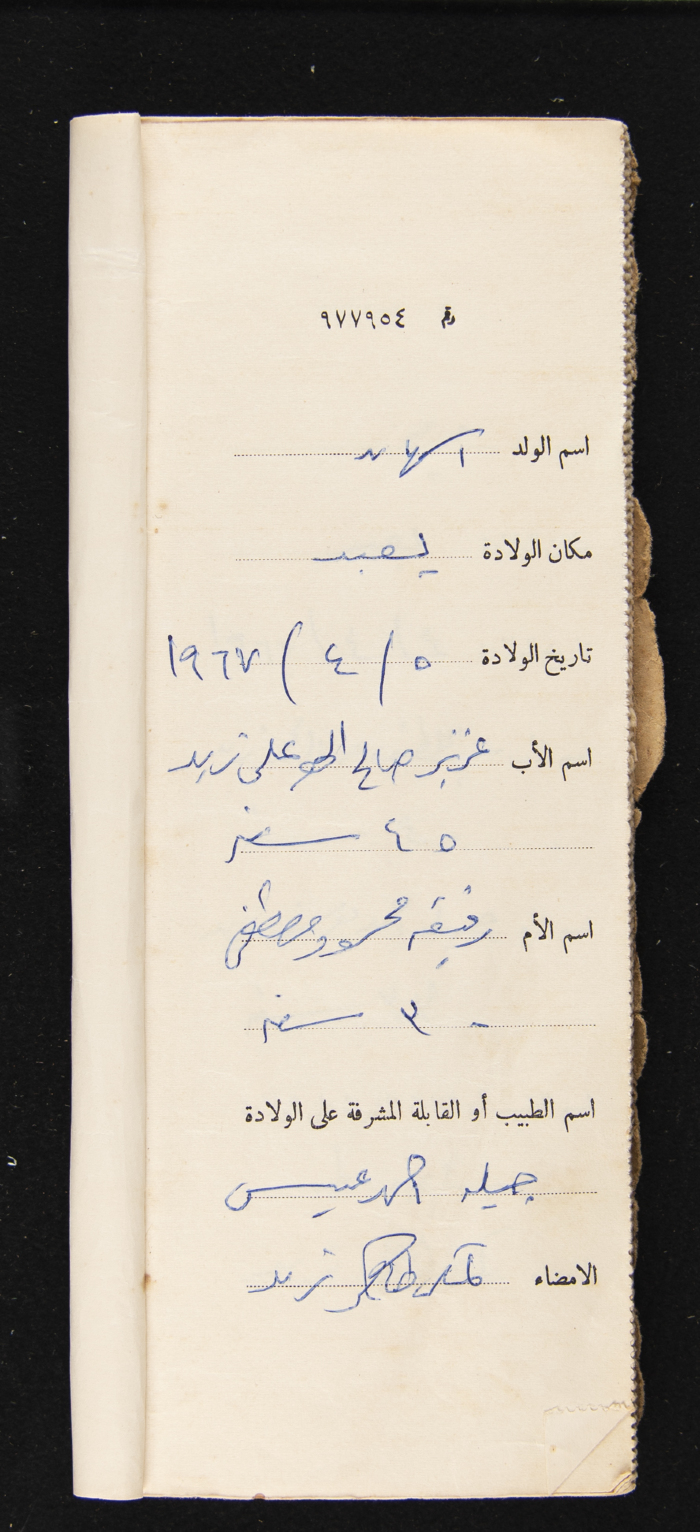 رقم ٩٧٧٩٥٤
اسم الولد
مكان الولادة يعبد
تاريخ الولادة ٥ / ٤ / ١٩٦٧
اسم الأب عزيز صالح علي زيد
٤٥ سنه
اسم الأم رفيقه محمود مصطفى
٣٠ سنه
اسم الطبيب أو القابلة المشرفة على الولادة
جميله احمد عيسى
الامضاء زيد